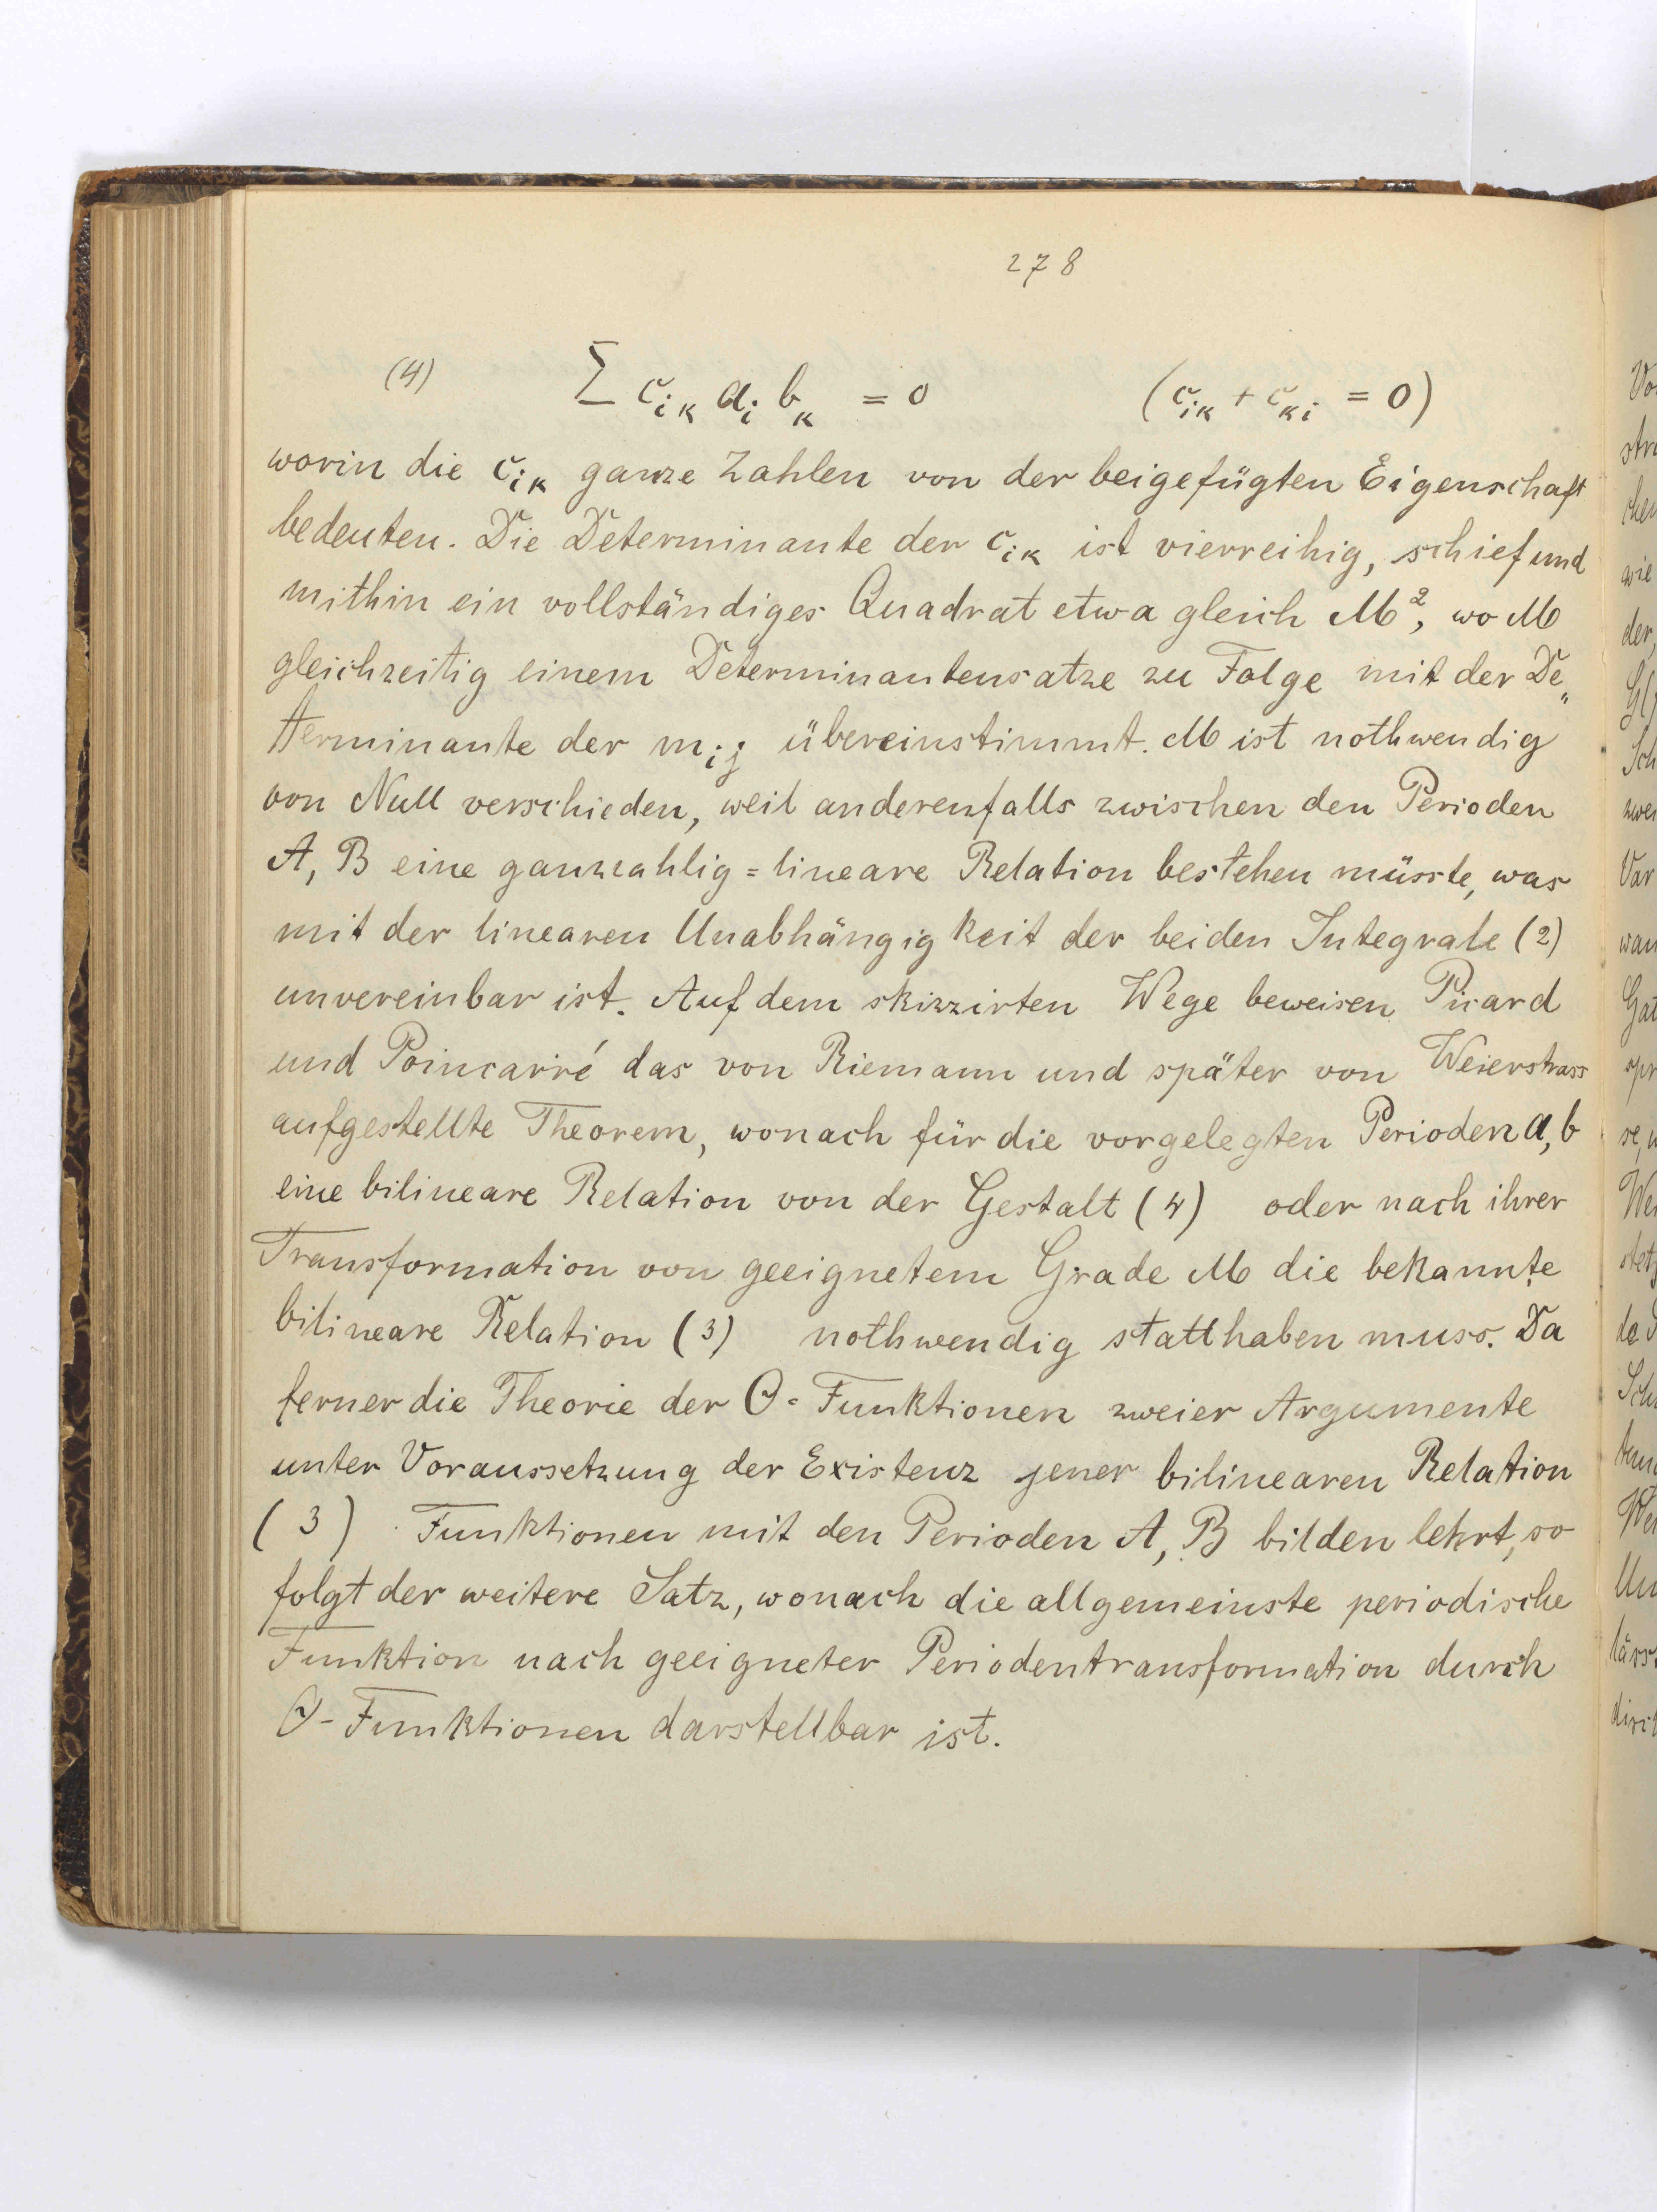 278
(4) Σ c_ik a_i b_k = 0 (c_ik + c_ki = 0)
worin die c_ik ganze Zahlen von der beigefügten Eigenschaft
bedeuten. Die Determinante der c_ik ist vierreihig, schief und
mithin ein vollständiges Quadrat etwa gleich M², wo M
gleichzeitig einem Determinantensatze zu Folge mit der De„
terminante der m_ij übereinstimmt. M ist nothwendig
von Null verschieden, weil anderenfalls zwischen den Perioden
A, B eine ganzzahlig=lineare Relation bestehen müsste, was
mit der linearen Unabhängigkeit der beiden Integrale (2)
unvereinbar ist. Auf dem skizzirten Wege beweisen Picard
und Poincarré das von Riemann und später von Weierstrass
aufgestellte Theorem, wonach für die vorgelegten Perioden a, b
eine bilineare Relation von der Gestalt (4) oder nach ihrer
Transformation von geeignetem Grade M die bekannte
bilineare Relation (3) nothwendig statthaben muss. Da
ferner die Theorie der Θ=Funktionen zweier Argumente
unter Voraussetzung der Existenz jener bilinearen Relation
(3) Funktionen mit den Perioden A, B bilden lehrt, so
folgt der weitere Satz, wonach die allgemeinste periodische
Funktion nach geeigneter Periodentransformation durch
Θ-Funktionen darstellbar ist.